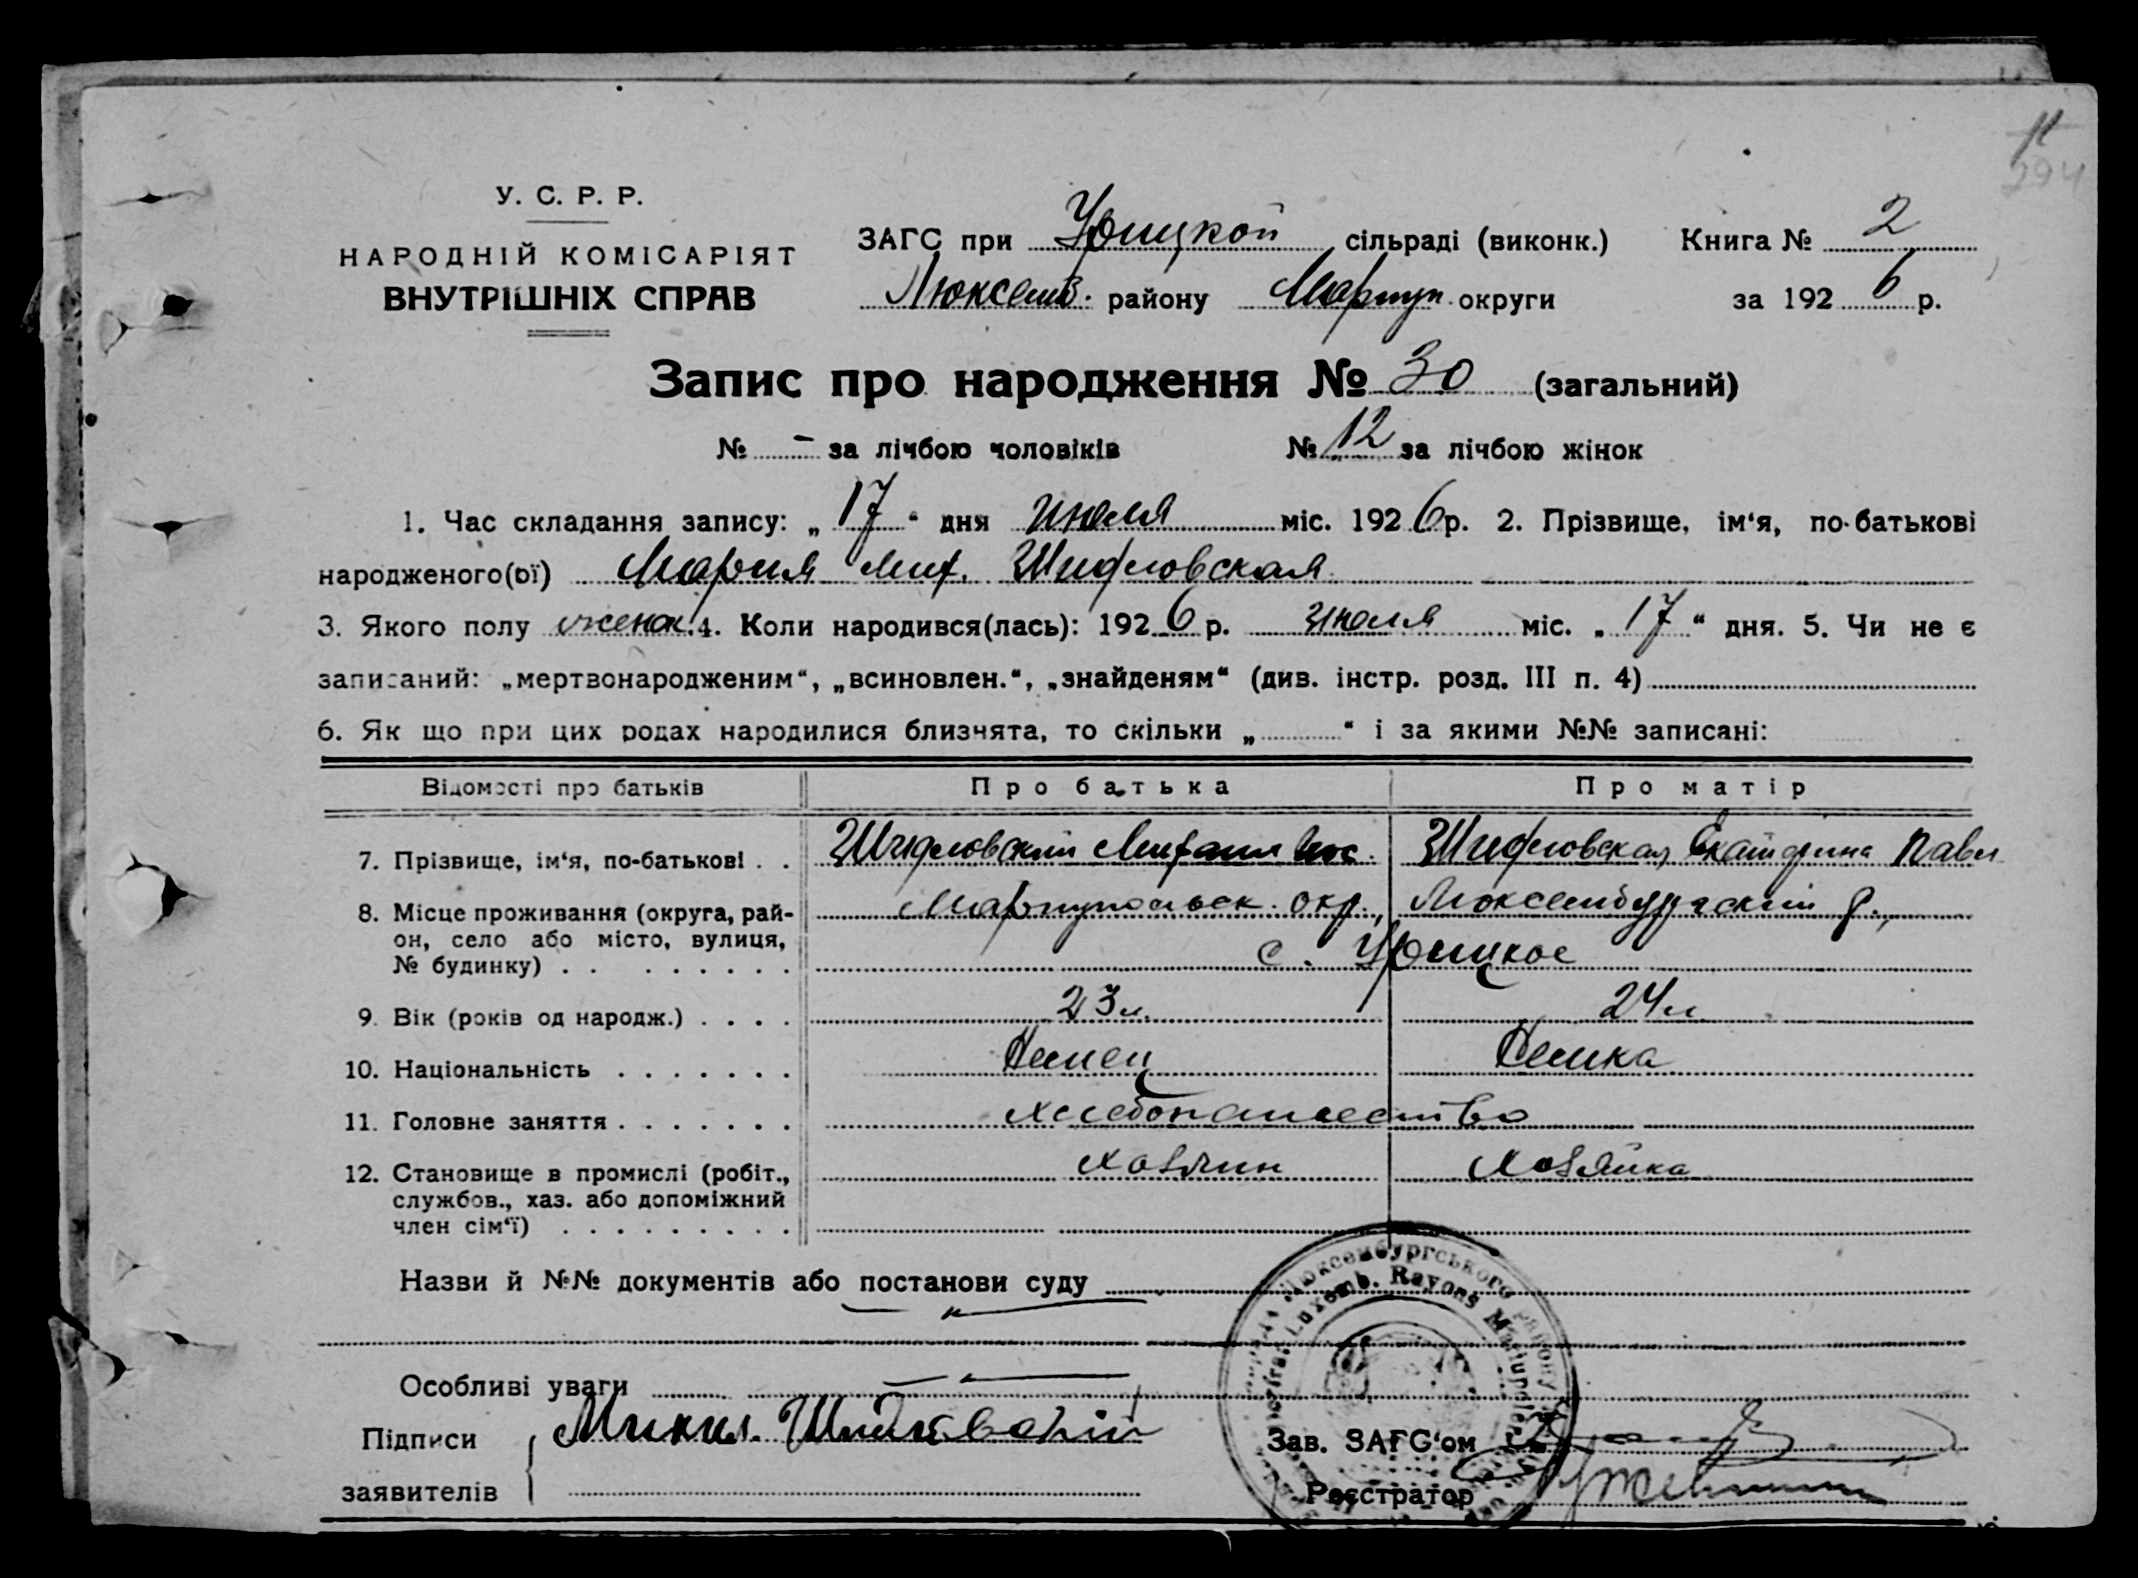 11
294
У. С. Р. Р.
НАРОДНІЙ КОМІСАРІЯТ
ВНУТРІШНІХ СПРАВ
ЗАГС при Урицкой сільраді (виконк.) Книга № 2
Люксемб. району Мариуп. округи за 1926 р.
Запис про народження № 30 (загальний)
№ - за лічбою чоловіків № 12 за лічбою жінок
1. Час складання запису: „17“ дня июля міс. 1926 р. 2. Прізвище, ім‘я, по-батькові
народженого(ої) Мария Мих. Шифловская
3. Якого полу женск. 4. Коли народився(лась): 1926 р. июля міс. „17“ дня. 5. Чи не є
записаний: „мертвонародженим“, „всиновлен.“, „знайденям“ (див. інстр. розд. III п. 4)
6. Як що при цих родах народилися близнята, то скільки „ “ і за якими №№ записані:
Відомості про батьків Про батька Про матір
7. Прізвище, ім‘я, по-батькові . . Шифловский Михаил Иос. Шифловская Екатерина Павл
8. Місце проживання (округа, рай- Мариупольск. окр., Люксембургский р.,
он, село або місто, вулиця,
№ будинку) . . . . . . . . с. Урицкое
9. Вік (років од народж.) . . . . 23 л. 24 л
10. Національність . . . . . . . Немец Немка
11. Головне заняття . . . . . . . хлебопашество
12. Становище в промислі (робіт., хозяин хозяйка
службов., хаз. або допоміжний
член сім‘ї) . . . . . . . . .
Назви й №№ документів або постанови суду
Особливі уваги
Підписи
заявителів
Михаил. Шифловский
Зав. ЗАГС‘ом
Реєстратор
Люксембургського району
Luxemb. Rayons Mariupoler